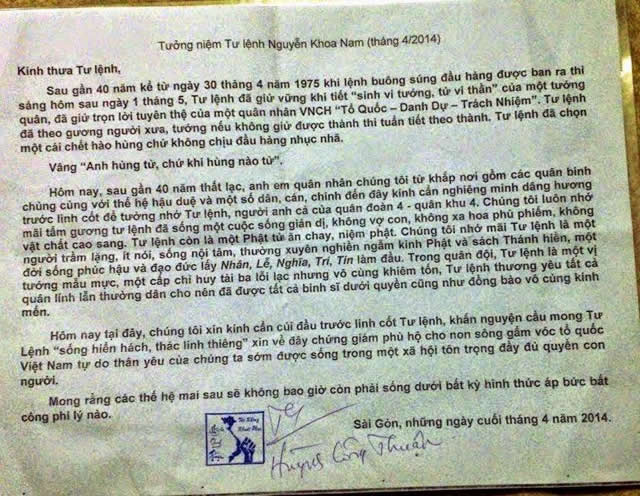 Tưởng niệm Tư lệnh Nguyễn Khoa Nam (tháng 4/2014)
Kính thưa Tư lệnh,
Sau gần 40 năm kể từ ngày 30 tháng 4 năm 1975 khi lệnh buông súng đầu hàng được ban ra thì
sáng hôm sau ngày 1 tháng 5, Tư lệnh đã giữ vững khí tiết "sinh vi tướng, tử vi thần" của một tướng
quân, đã giữ trọn lời tuyên thệ của một quân nhân VNCH "Tổ Quốc – Danh Dự – Trách Nhiệm". Tư lệnh
đã theo gương người xưa, tướng nếu không giữ được thành thì tuẫn tiết theo thành. Tư lệnh đã chọn
một cái chết hào hùng chứ không chịu đầu hàng nhục nhã.
Vâng "Anh hùng tử, chứ khí hùng nào tử".
Hôm nay, sau gần 40 năm thất lạc, anh em quân nhân chúng tôi từ khắp nơi gồm các quân binh
chủng cùng với thế hệ hậu duệ và một số dân, cán, chính đến đây kính cẩn nghiêng mình dâng hương
trước linh cốt để tưởng nhớ Tư lệnh, người anh cả của quân đoàn 4 - quân khu 4. Chúng tôi luôn nhớ
mãi tấm gương tư lệnh đã sống một cuộc sống giản dị, không vợ con, không xa hoa phù phiếm, không
vật chất cao sang. Tư lệnh còn là một Phật tử ăn chay, niệm phật. Chúng tôi nhớ mãi Tư lệnh là một
người trầm lặng, ít nói, sống nội tâm, thường xuyên nghiền ngẫm kinh Phật và sách Thánh hiền, một
đời sống phúc hậu và đạo đức lấy Nhân, Lễ, Nghĩa, Trí, Tín làm đầu. Trong quân đội, Tư lệnh là một vị
tướng mẫu mực, một cấp chỉ huy tài ba lỗi lạc nhưng vô cùng khiêm tốn, Tư lệnh thương yêu tất cả
quân lính lẫn thường dân cho nên đã được tất cả binh sĩ dưới quyền cũng như đồng bào vô cùng kính
mến.
Hôm nay tại đây, chúng tôi xin kính cẩn cúi đầu trước linh cốt Tư lệnh, khấn nguyện cầu mong Tư
Lệnh "sống hiển hách, thác linh thiêng" xin về đây chứng giám phù hộ cho non sông gấm vóc tổ quốc
Việt Nam tự do thân yêu của chúng ta sớm được sống trong một xã hội tôn trọng đầy đủ quyền con
người.
Mong rằng các thế hệ mai sau sẽ không bao giờ còn phải sống dưới bất kỳ hình thức áp bức bất
công phi lý nào.
Sài Gòn, những ngày cuối tháng 4 năm 2014.
Huỳnh Công Thuận